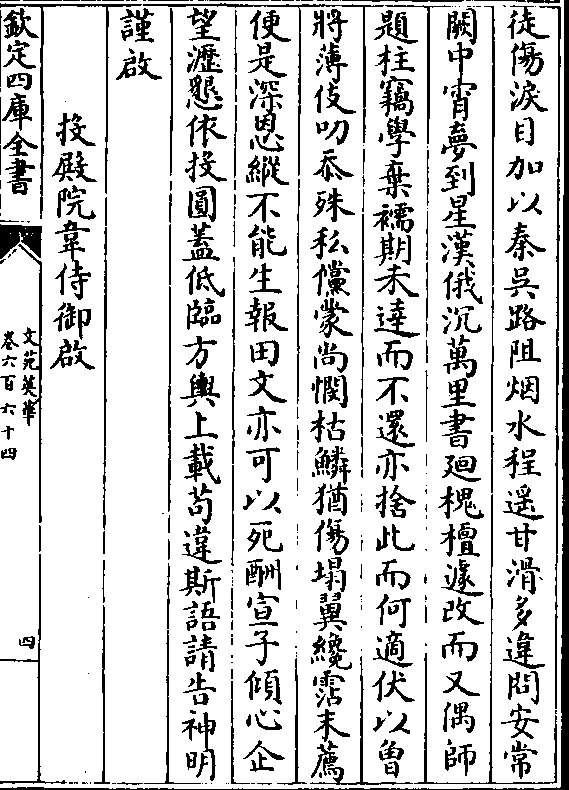 徒傷淚目加以秦吳路阻烟水程遥甘滑多違問安常
闕中宵夢到星漢俄沉萬里書廻槐檀遽改而又偶師
題柱竊學棄襦期未達而不還亦捨此而何適伏以曾
將薄伎叨忝殊私儻蒙尚憫枯鱗猶傷塌翼纔霑末薦
便是深恩縱不能生報田文亦可以死酬宣子傾心企
望瀝懇依投圓蓋低臨方輿上載苟違斯語請告神明
謹啟
投殿院韋侍御啟
欽定四庫全書
文苑英華
卷六百六十四
四